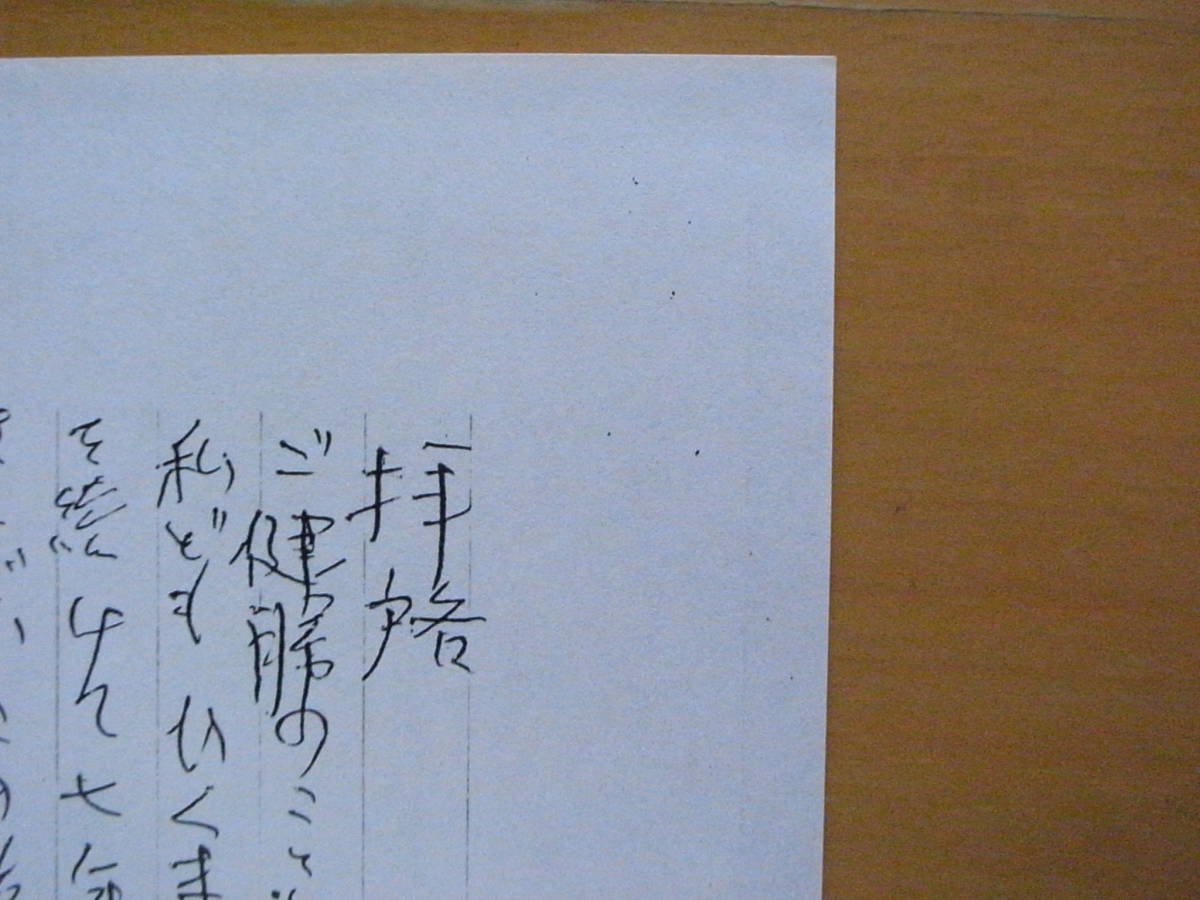 拝啓
ご健勝のこと
私どもひくま
を続けて七年